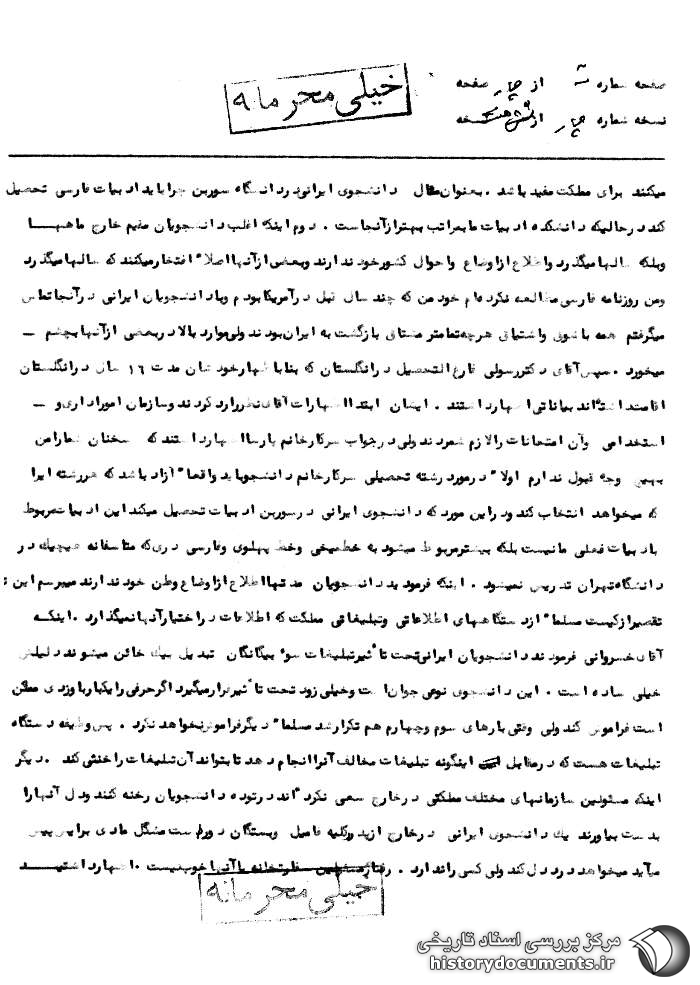 صفحه شماره سه از چهار صفحه
خیلی محرمانه
نسخه شماره چهار از نسخه
میکنند برای مملکت مفید باشد . بعنوان مثال دانشجوی ایرانی در دانشگاه سوربن چرا باید ادبیات فارسی تحصیل
کند در حالیکه دانشکده ادبیات ما بمراتب بهتر از آنجاست . دوم اینکه اغلب دانشجویان مقیم خارج ماهها
وبلکه سالها میگذرد واطلاع از اوضاع واحوال کشور خود ندارند وبعضی از آنها اصلا" افتخار میکنند که سالها میگذرد
ومن روزنامه فارسی مطالعه نکرده ام خود من که چند سال قبل در آمریکا بودم وبا دانشجویان ایرانی در آنجا تماس
میگرفتم همه با شوق واشتیاق هرچه تمامتر مشتاق بازگشت به ایران بودند ولی موارد بالا در بعضی از آنها بچشم -
میخورد . سپس آقای دکتر رسولی فارغ التحصیل در انگلستان که بنا باظهار خودشان مدت ۱۶ سال در انگلستان
اقامت داشته اند بیاناتی اظهار داشتند . ایشان ابتدا اظهارات آقای نظر را رد کردند وسازمان امور اداری و -
استخدامی وآن امتحانات را لازم شمردند ولی در جواب سرکار خانم پارسا اظهار داشتند که سخنان شما را من
بهیچ وجه قبول ندارم اولا" در مورد رشته تحصیلی سرکار خانم دانشجو باید واقعا" آزاد باشد که هر رشته ایرا
که میخواهد انتخاب کند ودر این مورد که دانشجوی ایرانی در سوربن ادبیات تحصیل میکند این ادبیات مربوط
بادبیات فعلی ما نیست بلکه بیشتر مربوط میشود به خط میخی وخط پهلوی وفارسی دری که متاسفانه هیچیک در
دانشگاه تهران تدریس نمیشود . اینکه فرمودید دانشجویان مدتها اطلاع از اوضاع وطن خود ندارند میپرسم این
تقصیر از کیست مسلما" از دستگاههای اطلاعاتی وتبلیغاتی مملکت که اطلاعات در اختیار آنها نمیگذارد . اینکه
آقای خسروانی فرمودند دانشجویان ایرانی تحت تأثیر تبلیغات سوء بیگانگان تبدیل بیک خائن میشوند دلیلش
خیلی ساده است . این دانشجوی نوعی جوان است وخیلی زود تحت تأثیر قرار میگیرد اگر حرفی را یکبار باو زدی ممکن
است فراموش کند ولی وقتی بارهای سوم وچهارم هم تکرار شد مسلما" دیگر فراموش نخواهد کرد . پس وظیفه دستگاه
تبلیغات هست که در مقابل اینگونه تبلیغات مخالف آنرا انجام دهد تا بتواند آن تبلیغات را خنثی کند . دیگر
اینکه مسئولین سازمانهای مختلف مملکتی در خارج سعی نکرده اند در توده دانشجویان رخنه کنند ودل آنها را
بدست بیاورند یک دانشجوی ایرانی در خارج از پدر وکلیه فامیل وبستگان دور است مشکل مادی برایش پیش
میآید میخواهد درد دل کند ولی کسی را ندارد . رفتار مسئولین سفارتخانه با آنها خوب نیست . اظهار داشتند
خیلی محرمانه
مرکز بررسی اسناد تاریخی
historydocuments.ir